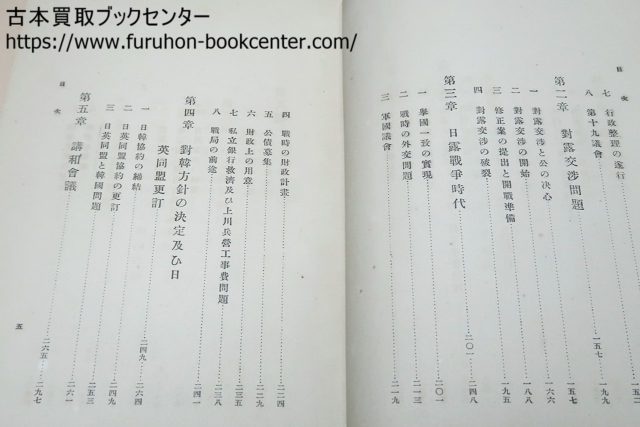 古本買取ブックセンター
https://www.furuhon-bookcenter.com/
目次
七 行政整理の遂行
八 第十九議會 一五七
第二章 對露交渉問題 一五七
一 對露交渉と公の決心
二 對露交渉の開始
三 修正案の提出と開戰準備 一九五
四 對露交渉の破裂
第三章 日露戰爭時代 二〇一
一 擧國一致の實現 二〇一
二 戰時の外交問題 二一三
三 軍國議會 二一九
目次
四 戰時の財政計畫 二二四
五 公債募集 二二九
六 財政上の用意 二三五
七 私立銀行救濟及ひ上川兵營工事費問題 二三八
八 戰局の前途 二四一
第四章 對韓方針の決定及ひ日
英同盟更訂 二四九
一 日韓協約の締結
二 日英同盟協約の更訂 二四九
三 日英同盟と韓國問題 二五三
第五章 講和會議 二六五
五